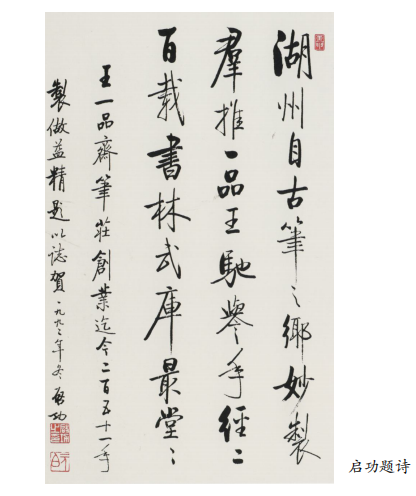 湖州自古筆之鄉妙製
羣推一品王馳譽年經二
百載書林武庫最堂〻
王一品齋筆莊創業迄今二百五十一年
製做益精題以誌賀一九九二年冬啓功
启功题诗